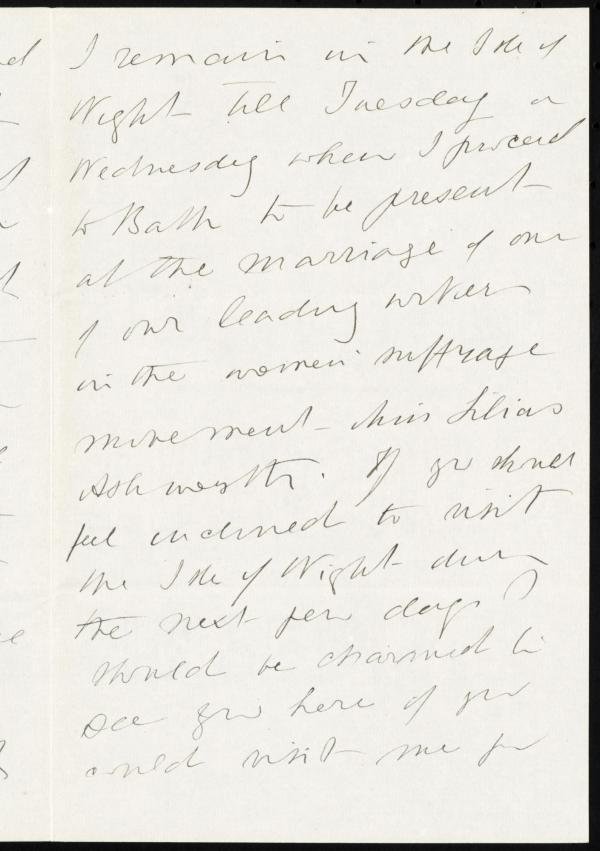 I remain in the Isle of
Wight till Tuesday or
Wednesday when I proceed
to Bath to be present
at the marriage of one
of our leading workers
in the women's suffrage
movement - Miss Lilias
Ashworth. If you should
feel inclined to visit
the Isle of Wight during
the next few days I
should be charmed to
see you here if you
could visit me for